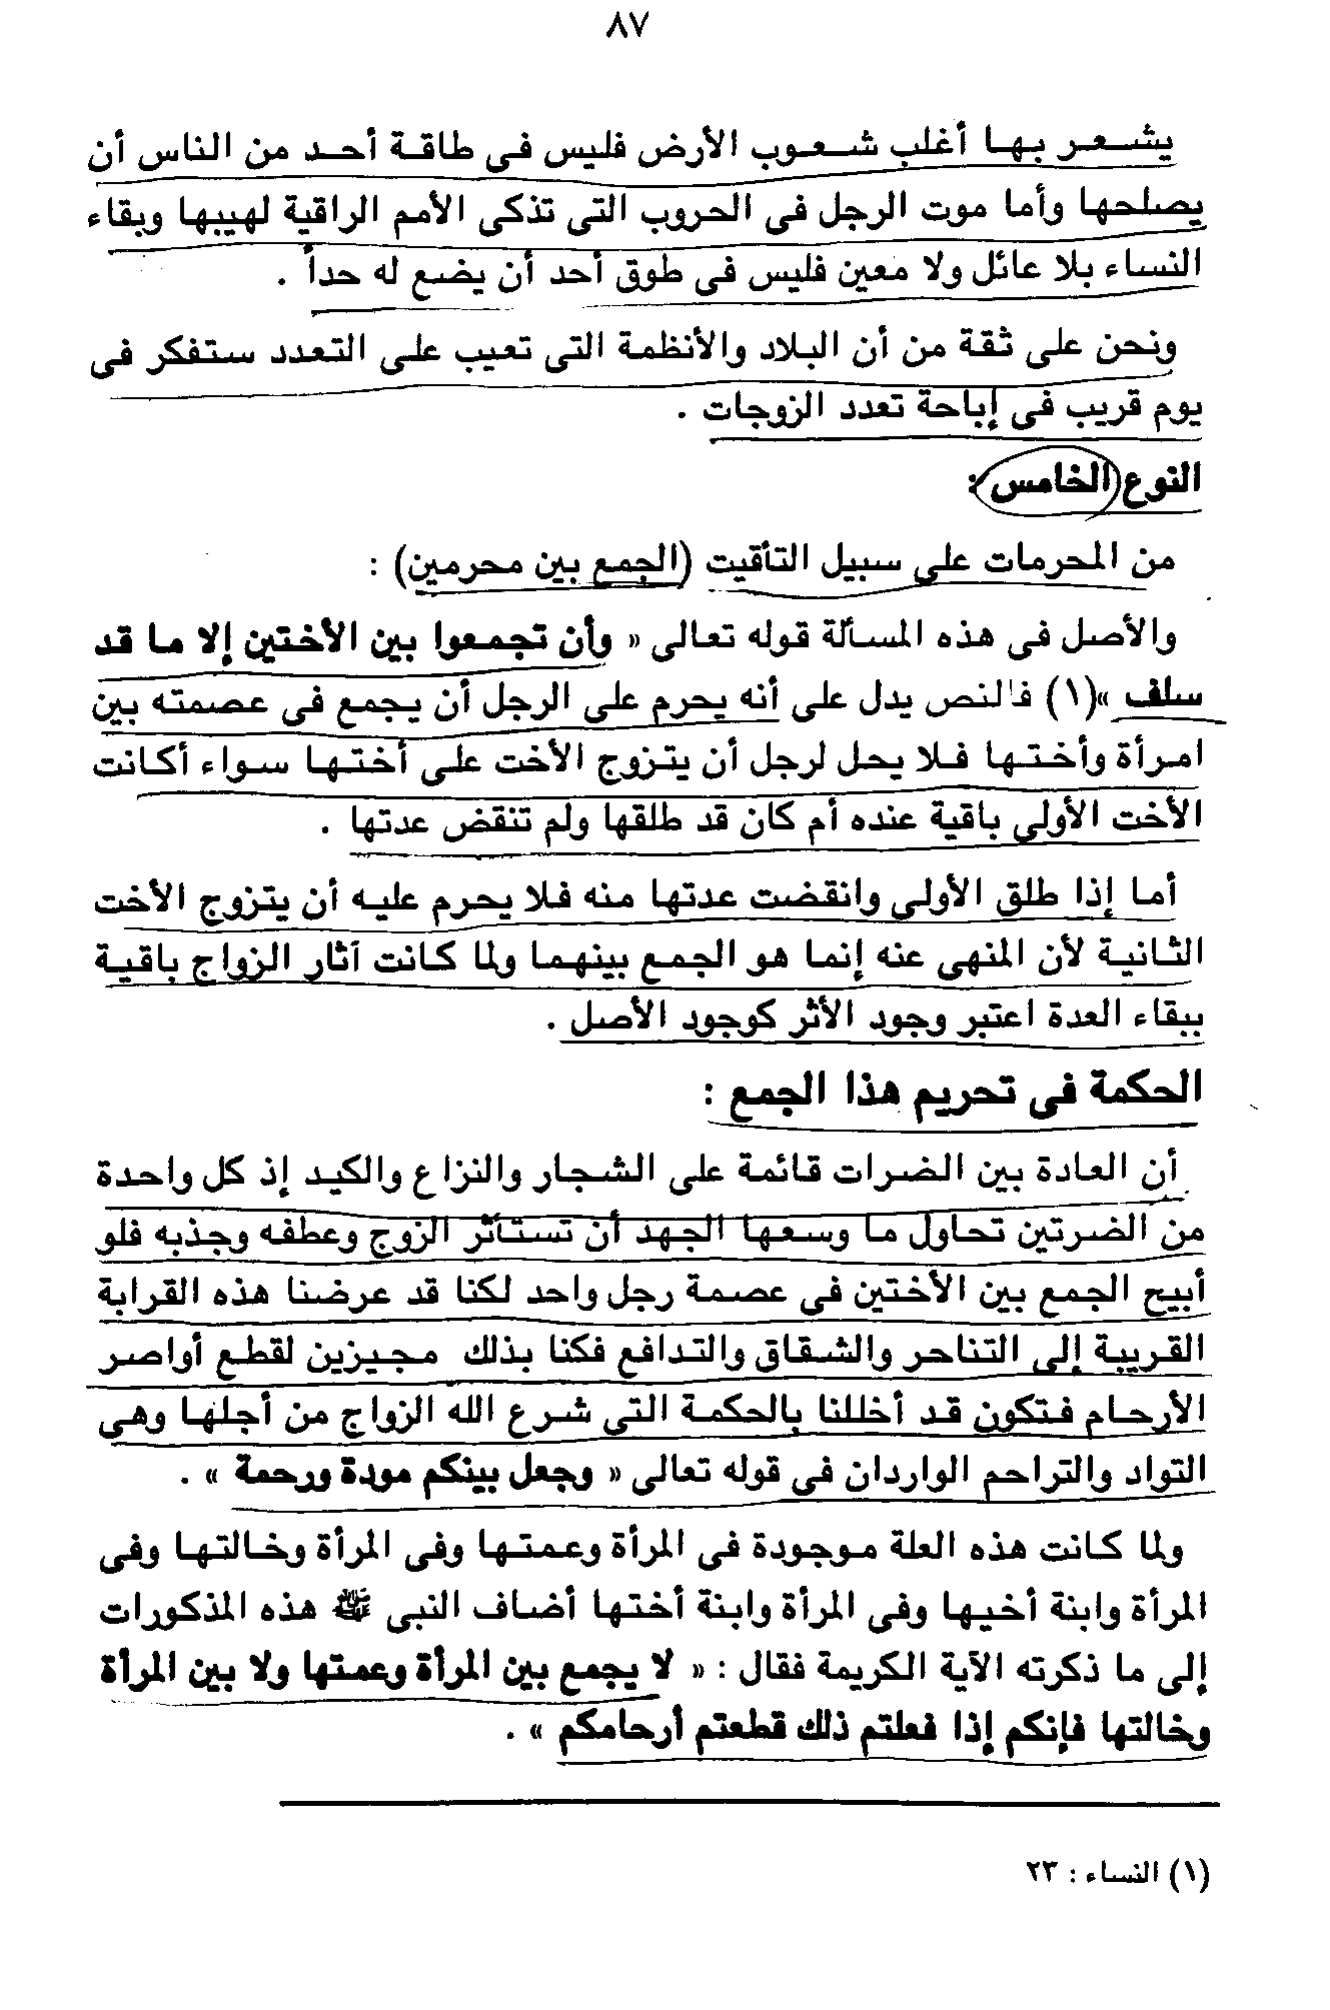 ٨٧
يشعر بها أغلب شعوب الأرض فليس فى طاقة أحد من الناس أن
يصلحها وأما موت الرجل فى الحروب التى تذكى الأمم الراقية لهيبها وبقاء
النساء بلا عائل ولا معين فليس فى طوق أحد أن يضع له حداً .
ونحن على ثقة من أن البلاد والأنظمة التى تعيب على التعدد ستفكر فى
يوم قريب فى إباحة تعدد الزوجات .
النوع الخامس :
من المحرمات على سبيل التأقيت (الجمع بين محرمين) :
والأصل فى هذه المسألة قوله تعالى « وأن تجمعوا بين الأختين إلا ما قد
سلف »(١) فالنص يدل على أنه يحرم على الرجل أن يجمع فى عصمته بين
امرأة وأختها فلا يحل لرجل أن يتزوج الأخت على أختها سواء أكانت
الأخت الأولى باقية عنده أم كان قد طلقها ولم تنقض عدتها .
أما إذا طلق الأولى وانقضت عدتها منه فلا يحرم عليه أن يتزوج الأخت
الثانية لأن المنهى عنه إنما هو الجمع بينهما ولما كانت آثار الزواج باقية
ببقاء العدة اعتبر وجود الأثر كوجود الأصل .
الحكمة فى تحريم هذا الجمع :
أن العادة بين الضرات قائمة على الشجار والنزاع والكيد إذ كل واحدة
من الضرتين تحاول ما وسعها الجهد أن تستأثر الزوج وعطفه وجذبه فلو
أبيح الجمع بين الأختين فى عصمة رجل واحد لكنا قد عرضنا هذه القرابة
القريبة إلى التناحر والشقاق والتدافع فكنا بذلك مجيزين لقطع أواصر
الأرحام فتكون قد أخللنا بالحكمة التى شرع الله الزواج من أجلها وهى
التواد والتراحم الواردان فى قوله تعالى « وجعل بينكم مودة ورحمة » .
ولما كانت هذه العلة موجودة فى المرأة وعمتها وفى المرأة وخالتها وفى
المرأة وابنة أخيها وفى المرأة وابنة أختها أضاف النبى ﷺ هذه المذكورات
إلى ما ذكرته الآية الكريمة فقال : « لا يجمع بين المرأة وعمتها ولا بين المرأة
وخالتها فإنكم إذا فعلتم ذلك قطعتم أرحامكم » .
(١) النساء : ٢٣